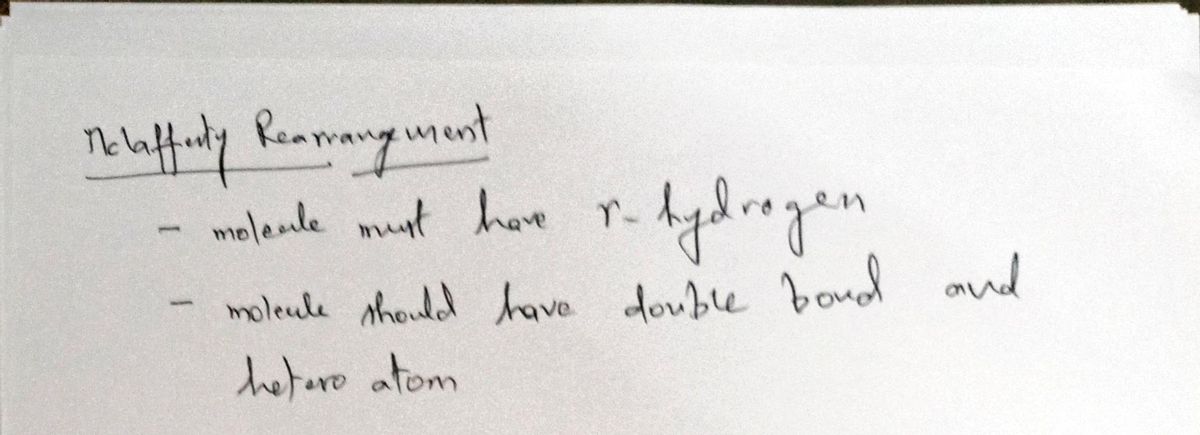 Mclafferty Rearrangement
- molecule must have r- hydrogen
- molecule should have double bond and
hetero atom